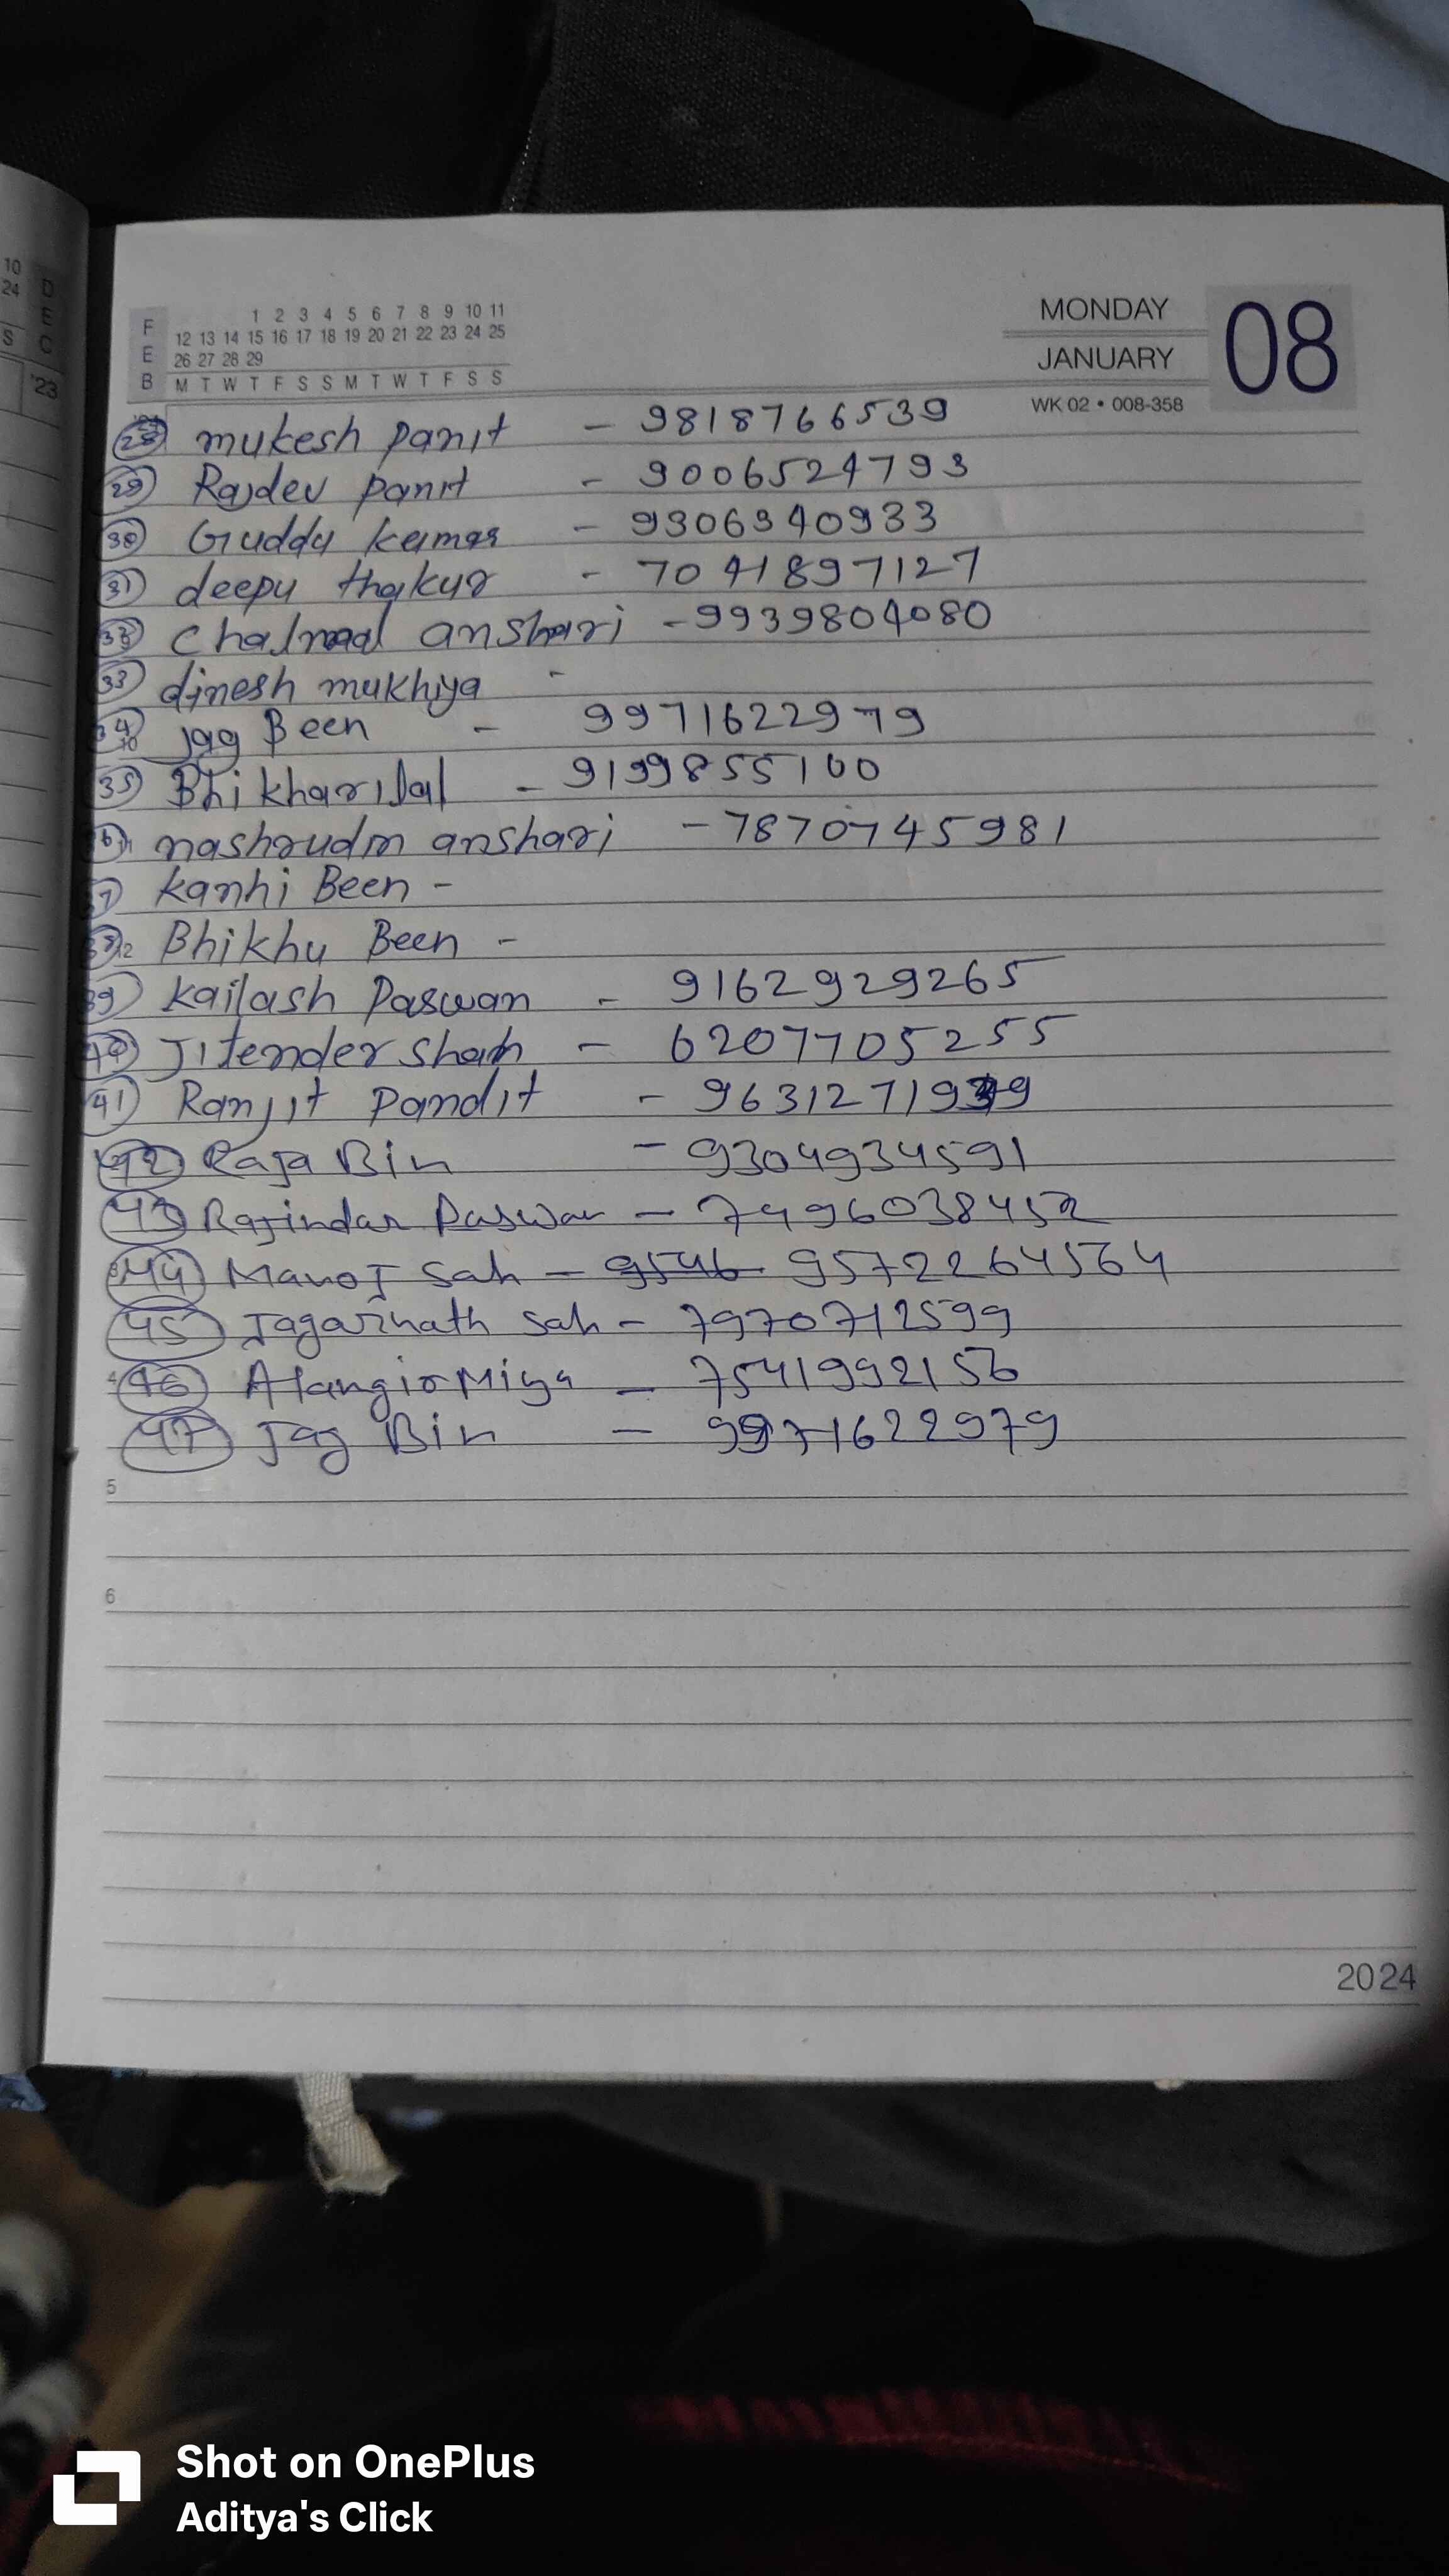 10
24 D
E
S C
'23
F 1 2 3 4 5 6 7 8 9 10 11
12 13 14 15 16 17 18 19 20 21 22 23 24 25
E 26 27 28 29
B M T W T F S S M T W T F S S
MONDAY
JANUARY
08
WK 02 • 008-358
28 mukesh panit - 9818766539
29 Rajdev panit - 9006524793
30 Guddu kumar - 9306940933
31 deepu thakur - 7041897127
32 anshari - 9939804080
33 dinesh mukhiya -
34 Jag Been - 9971622979
35 Bhikharilal - 9199855100
nashrudin anshari - 7870745981
37 Kanhi Been -
38 Bhikhu Been -
39 Kailash Paswan - 9162929265
40 Jitender Shah - 6207705255
41 Ranjit Pandit -
42 Raja Bin - 9304934591
43 Rajindar Paswan - 7496038452
44 Manoj Sah - 9546 9572264564
45 Jagarnath Sah - 7970712599
46 Alangir Miya - 7541992156
47 Jag Bin - 9971622979
5
6
2024
Shot on OnePlus
Aditya's Click